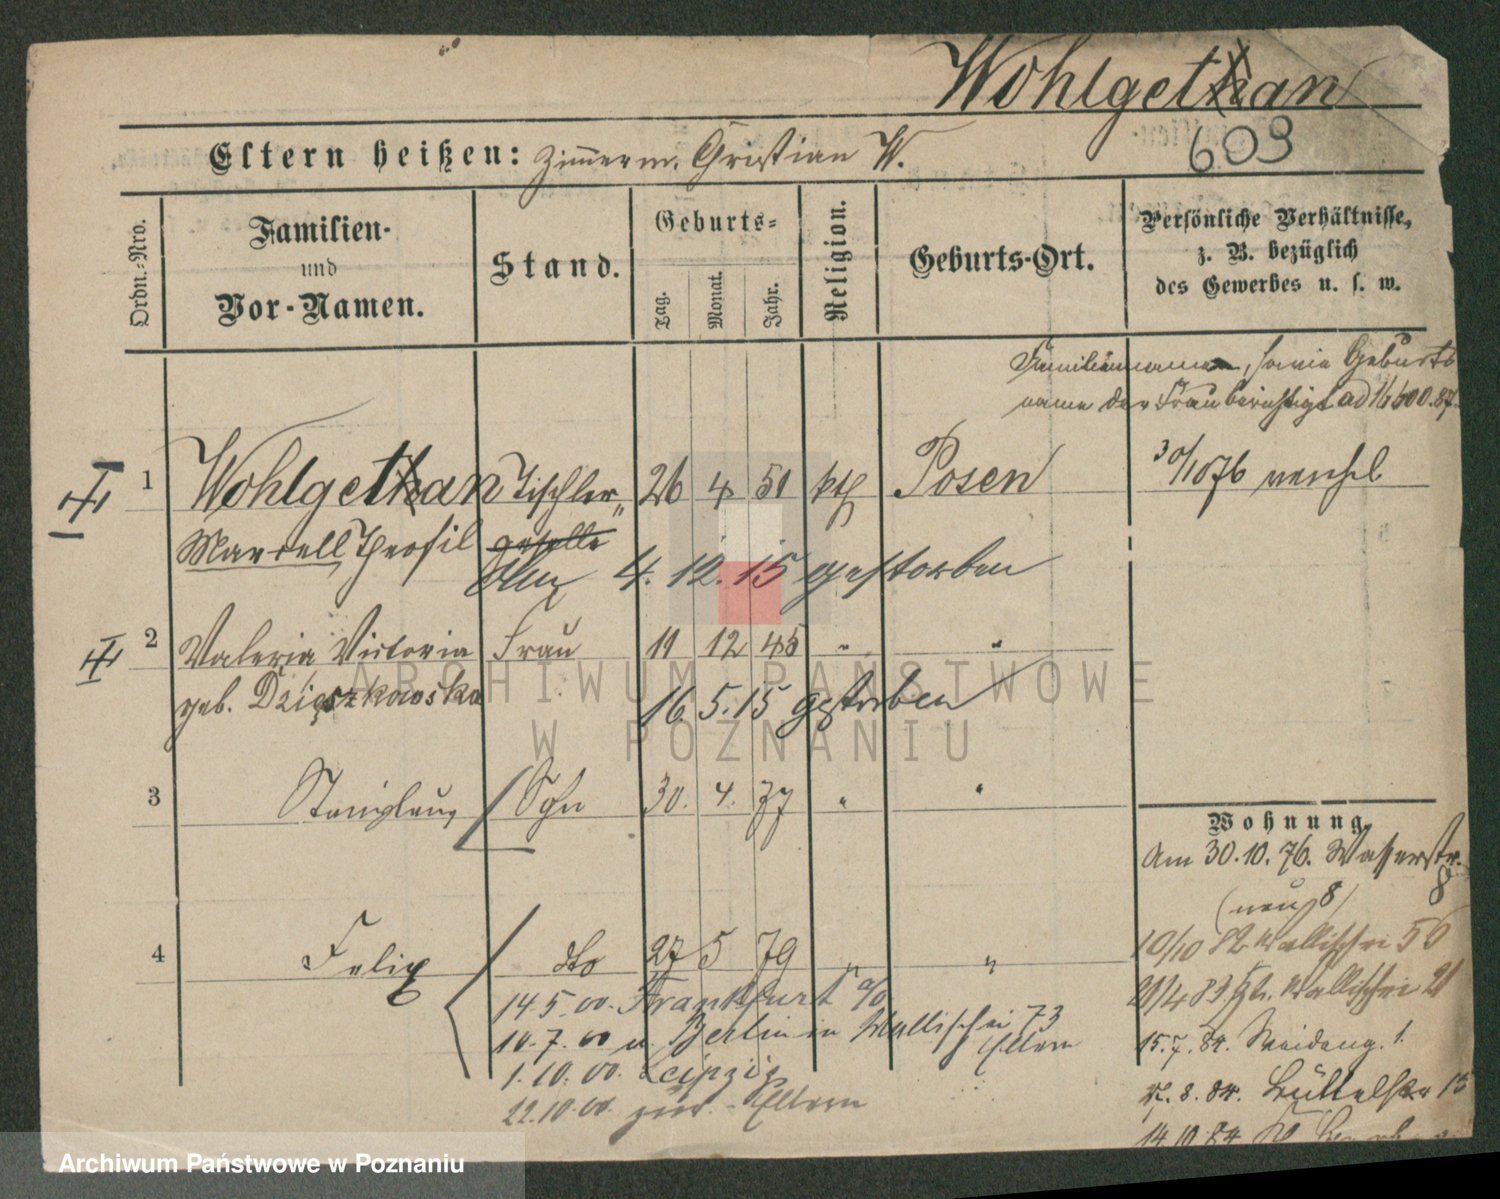 Wohlgethan
609
Eltern heißen: Zimmerm. Christian W.
Ordn.-Nro.
Familien-
und
Vor-Namen.
Stand.
Geburts-
Tag.
Monat.
Jahr.
Religion.
Geburts-Ort.
Persönliche Verhältnisse,
z. B. bezüglich
des Gewerbes u. s. w.
Familienname, sowie Geburts
name der Frau berichtigt ad 16600.87.
1 Wohlgethan Tischler 26 4 51 kth Posen 30/10 76
Marcell Theofil geselle
4. 12. 15 gestorben
2 Valeria Victoria Frau 11 12 45 " "
geb. Dzięszkowska
16. 5. 15 gestorben
3 Stanislaus Sohn 30. 4. 77 " "
Wohnung
Am 30.10.76. Wasserstr. 8
(neu 8)
4 Felix dto 27 5 79 " "
10/10 82 Wallischei 56
14.5.00. Frankfurt a/O
21/4 83 Wallischei 21
10.7.00 n. Berlin in Wallischei 73
Eltern
15.7.84. Weideng. 1.
1.10.00. Leipzig
8.84. Büttelstr 15
22.10.00. zur. Eltern
14.10.84
ARCHIWUM PAŃSTWOWE
W POZNANIU
Archiwum Państwowe w Poznaniu